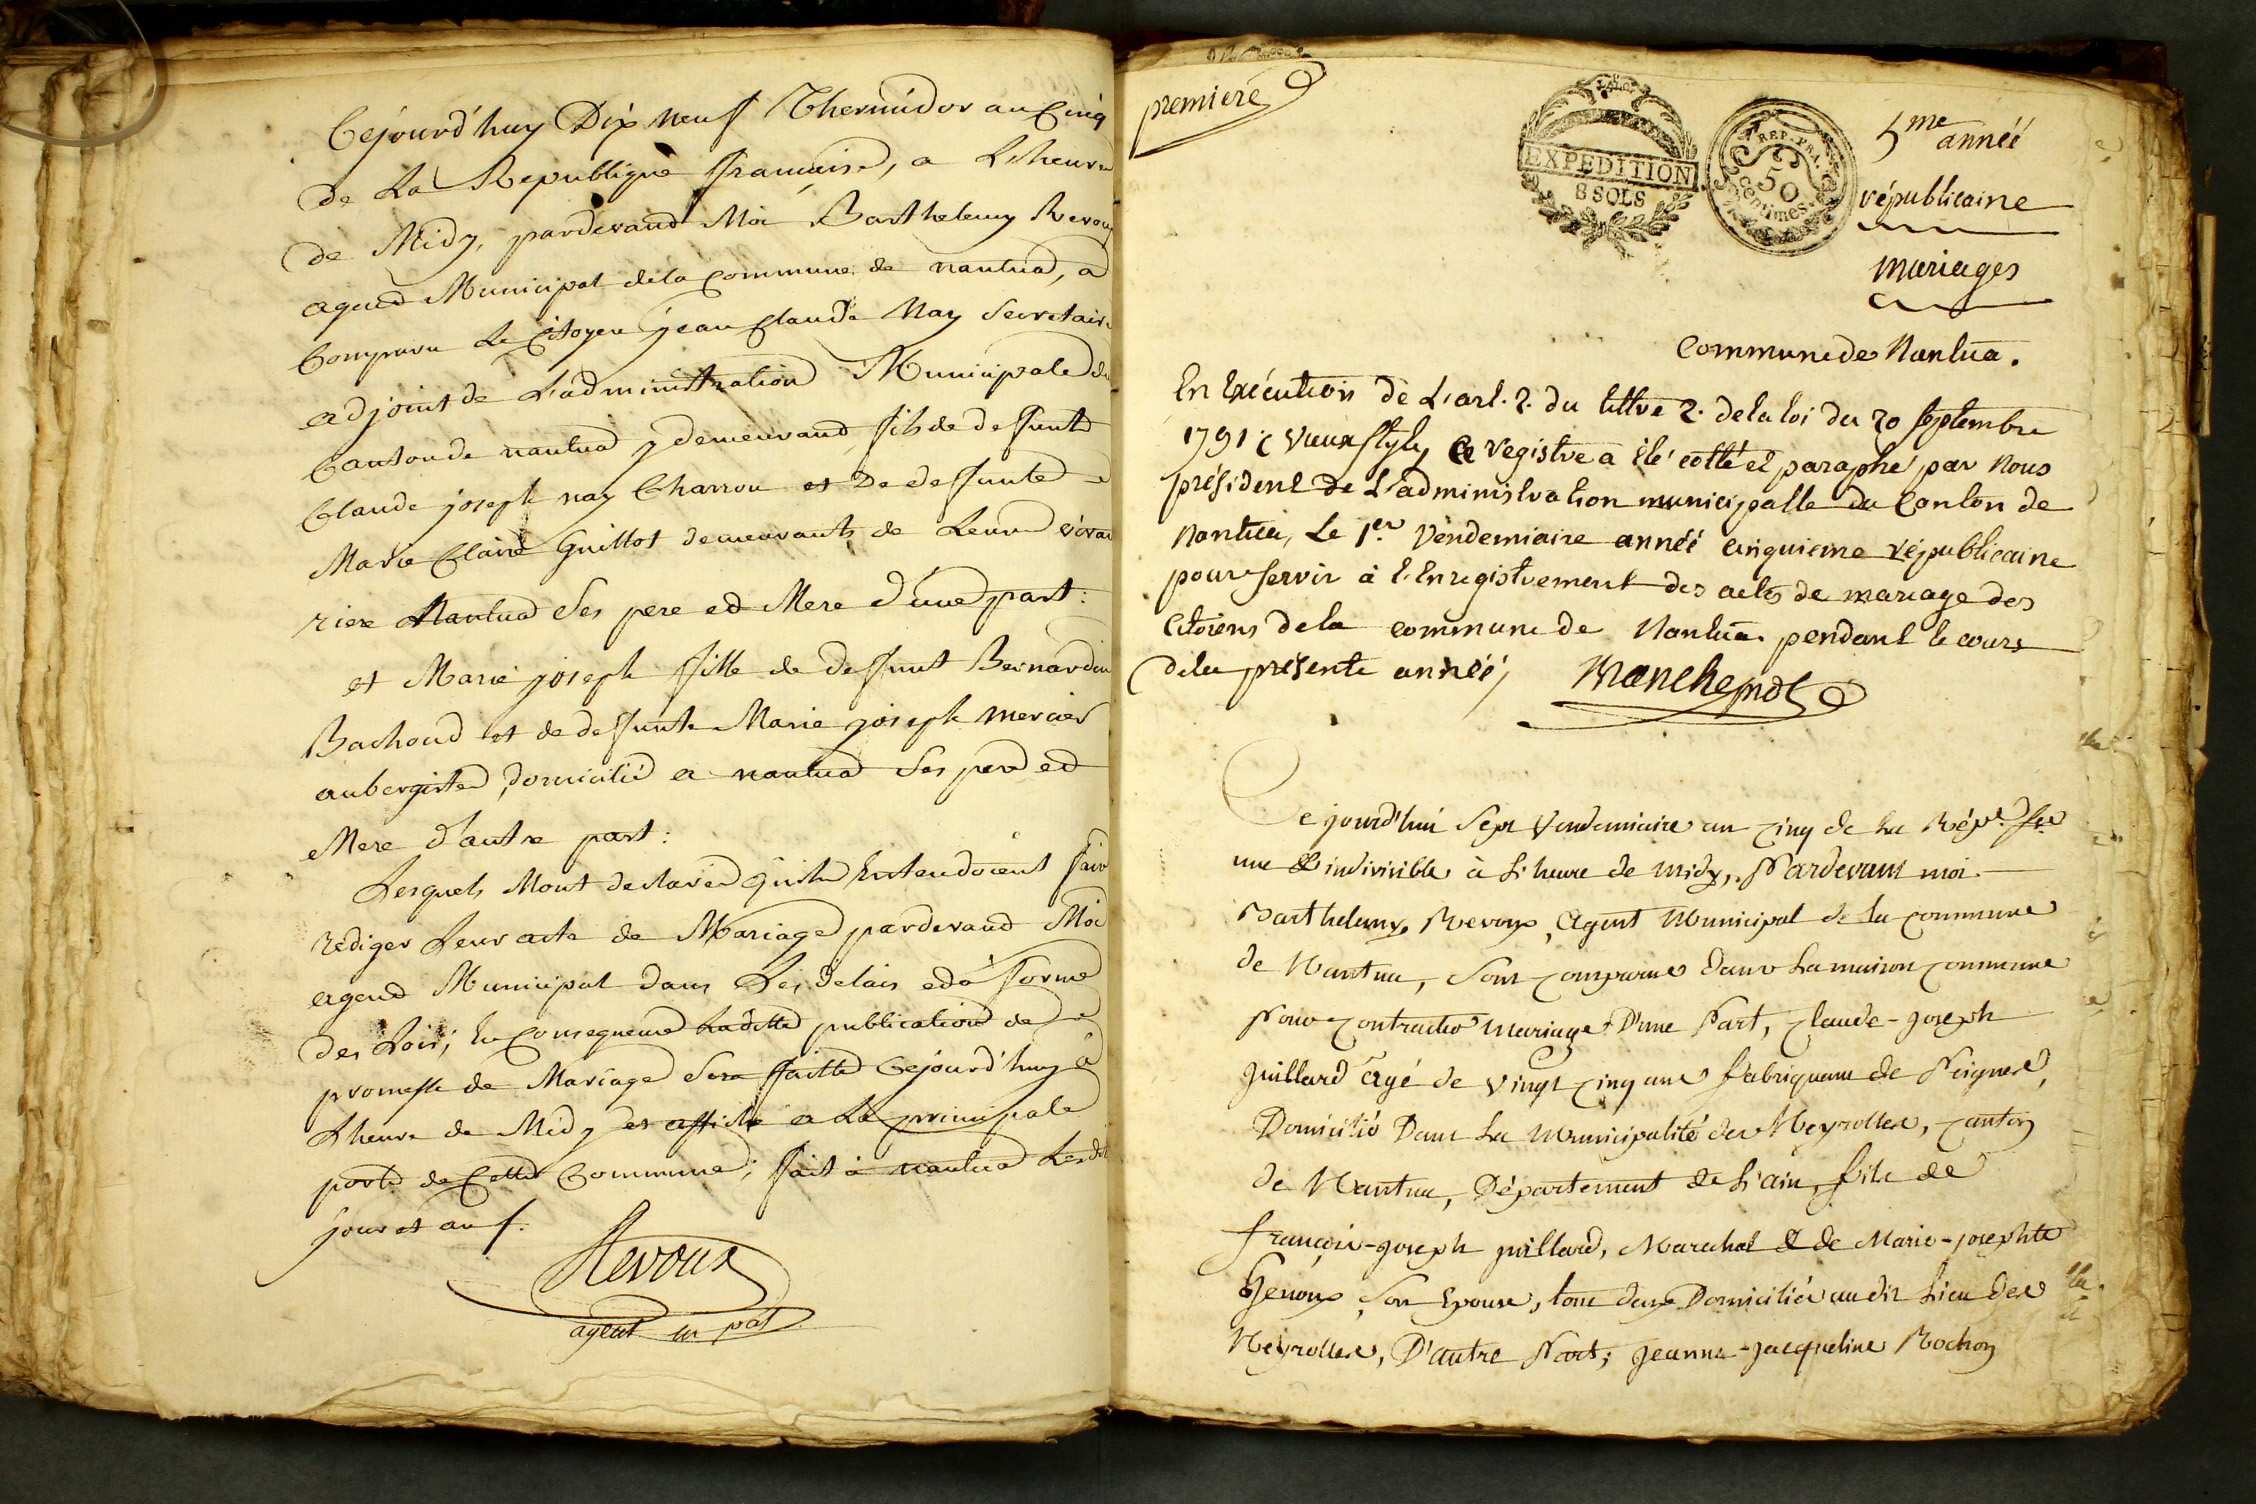 Cejourd'huy Dix neuf Thermidor an Cinq
de La Republique francaise, a Lheure
de Midy, pardevand Moi Barthelemy Revoux
agend Municipal dela Commune de nantua, a
Comparu Le Citoyen jean Claude Nay Secretaire
adjoint de L'administration Municipale du
Canton de nantua y demeurand, fils de defunt
Claude joseph nay Charron et De defunte
Marie Claire Guillot demeurants de Leur vivan
riere Nantua Ses pere ed Mere d'une part:
et Marie joseph fille de defunt Bernardin
Bachoud et de defunte Marie joseph mercier
aubergiste, domicilié a nantua Ses pere ed
Mere d'autre part:
Lesquels Mont declaré quils Entendoient faire
rediger Leur acte de Mariage pardevand Moi
agend Municipal dans Les delais ed a forme
des Lois; En Consequence Laditte publication de
promesse de Mariage Sera faitte Cejourd'huy à
Lheure de Midy et affiché a La principale
porte de Cette Commune; fait à nantua Lesdit
jour et an f.
Revoux
agent m pal
premiere
EXPEDITION
8 SOLS
REP. FRA.
50
centimes
5me année
républicaine
mariages
Commune de Nantua.
En Exécution de L'art. 2. du tittre 2. de la loi du 20 septembre
1791 (vieux style) Ce registre a été cotté et paraphé par Nous
président de L'administration municipalle du Canton de
Nantua, Le 1er Vendemiaire année cinquieme républicaine
pour servir à l'Enregistrement des actes de mariage des
Citoiens de la commune de Nantua pendant le cours
dela présente année,
Ce jourd'hui Sept Vendemiaire an cinq de La Répe. fse
une & indivisible à L'heure de midy, Pardevant moi
Barthelemy Revoux, Agent Municipal de la commune
de Nantua, Sont comparus dans La maison commune
Pour contracter mariage D'une Part, Claude-Joseph
juillard âgé de vingt cinq ans fabriquant de Peignes,
Domicilié Dans La Municipalité des Neyrolles, canton
de Nantua, Département de L'ain, fils de
françois-joseph juillard, Marechal & de Marie-josephte
Genoux Son Epouse, tous deux Domiciliés au dit Lieu des
Neyrolles, D'autre Part; jeanne-jacqueline Rochon